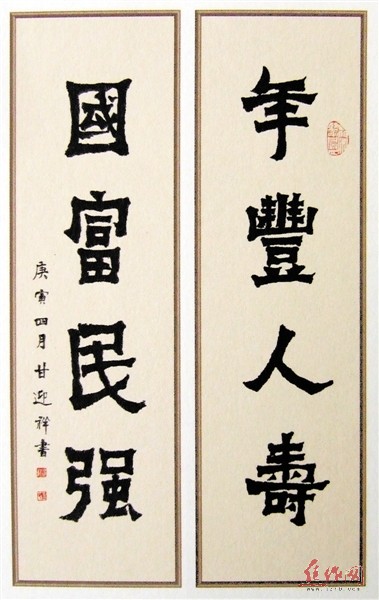 年豐人壽
國富民强
庚寅四月甘迎祥書
焦作网